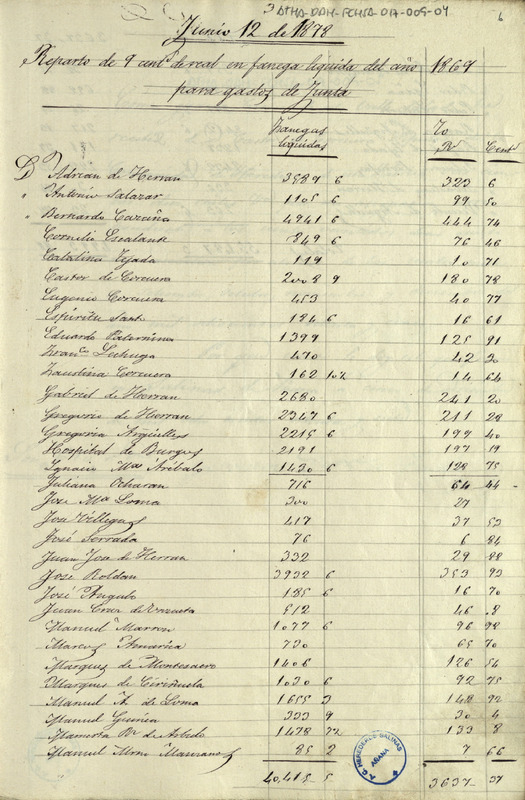 ATHA-DAH-FCHSA-017-009-04
6
Junio 12 de 1878
Reparto de 9 cents de real en fanega liquida del año 1869
para gastos de Junta
Fanegas
liquidas
Rs Cents
D Adrian de Herran 3589 6 323 6
" Antonio Salazar 1105 6 99 50
" Bernardo 4941 6 444 74
Cornelio Escalante 849 6 76 46
Catalina Tejada 119 10 71
Castor de Corcuera 2008 9 180 78
Eugenio Corcuera 453 40 77
Espiritu Santo 184 6 16 61
Eduardo Paternina 1399 125 91
Franco Lechuga 470 42 30
Faustina Corcuera 162 10½ 14 64
Gabriel de Herran 2680 241 20
Gregorio de Herran 2347 6 211 28
Gregoria Argüelles 2215 6 199 40
Hospital de Burgos 2191 197 19
Ignacio Ma Arébalo 1430 6 128 75
Juliana Ocharan 716 64 44
Jose Ma Soma 300 27
Jose Villegas 417 37 53
José Serrada 76 6 84
Juan Jose de Herran 332 29 88
José Roldan 3932 6 353 93
José Angulo 185 6 16 70
Juan Cruz de 512 46 8
Manuel Marron 1077 6 96 98
Marcos 730 65 70
Marques de Montesacro 1406 126 54
Marques de Ciriñuela 1030 6 92 75
Manuel A. de Soma 1655 3 148 92
Manuel Guinea 333 9 30 4
1478 133 8
Manuel Manzanos 85 2 7 66
40,415-5 3637-37
A.G. HEREDEROS SALINAS
ARANA